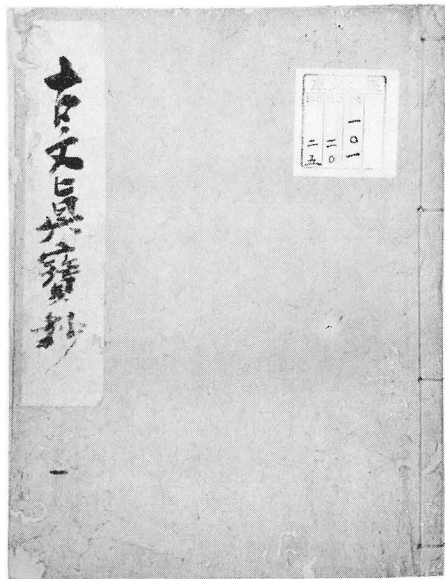 古文真寳抄
一
一〇一
二〇
二五